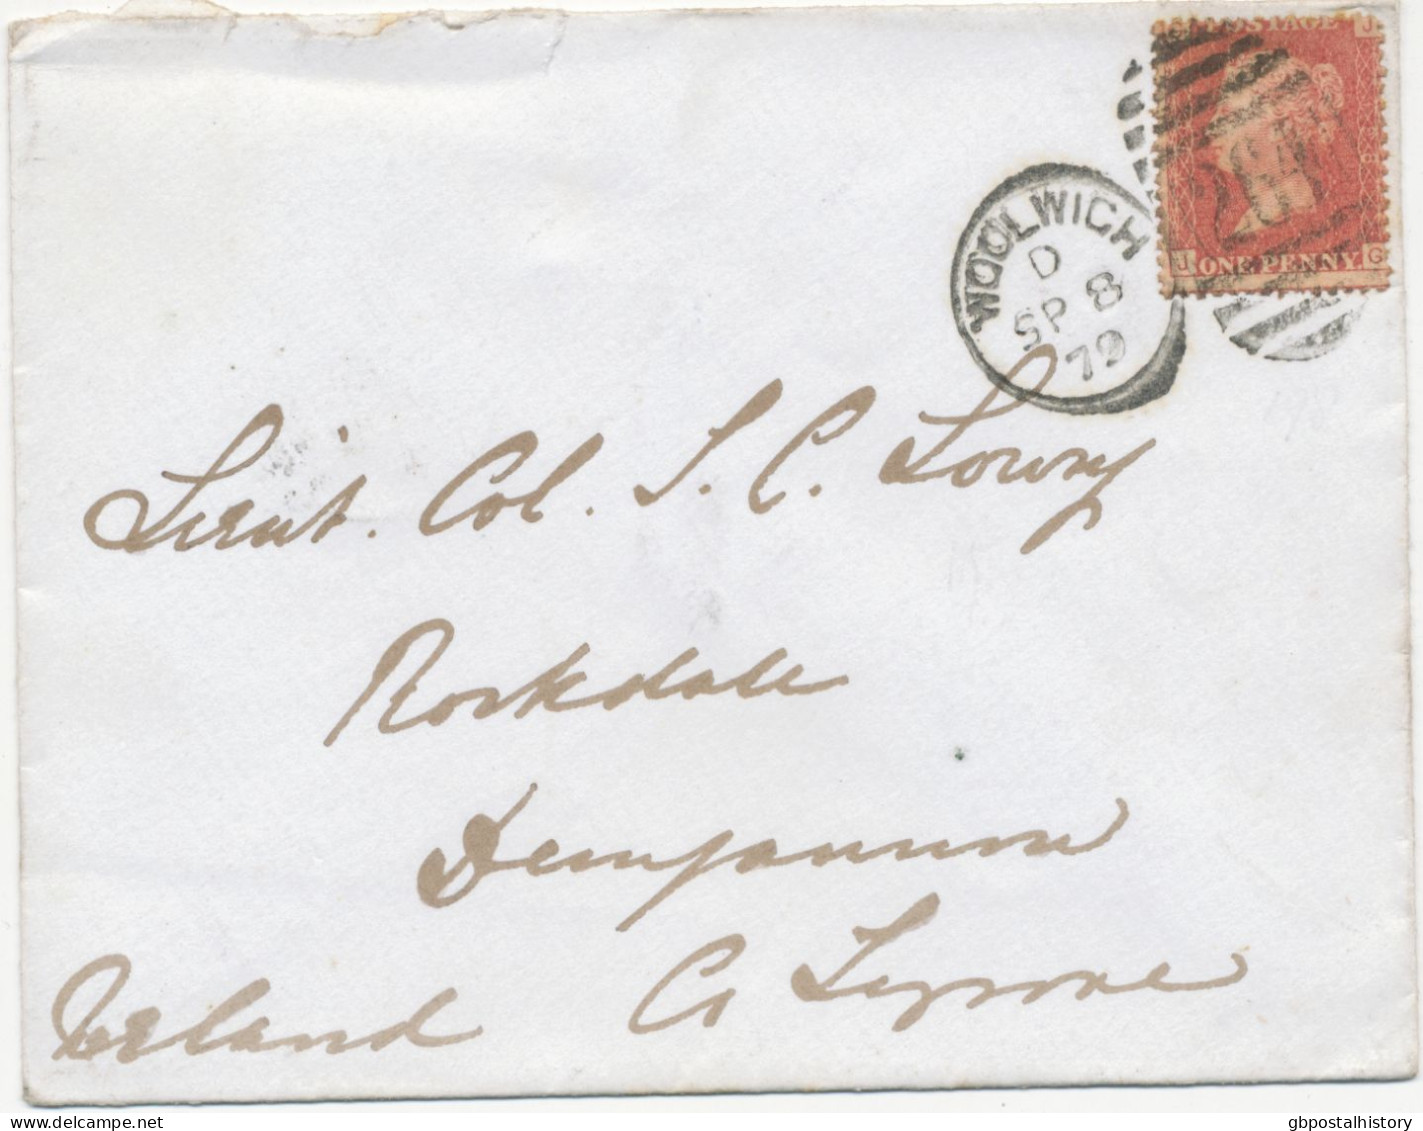 POSTAGE
ONE PENNY
J G
WOOLWICH
D
SP 8
79
Lieut. Col. T. C. Lowry
Rockdale
Dungannon
Co Tyrone
Ireland
Delcampe.net
gbpostalhistory